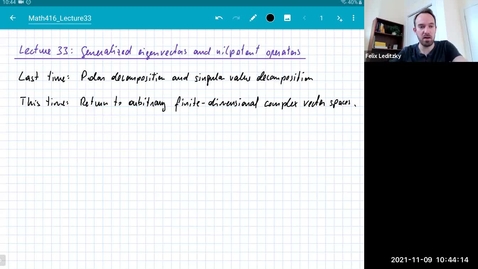 10:44
40%
Math416_Lecture33
1
Lecture 33: Generalized eigenvectors and nilpotent operators
Last time: Polar decomposition and singular value decomposition
This time: Return to arbitrary finite-dimensional complex vector spaces.
Felix Leditzky
2021-11-09 10:44:14